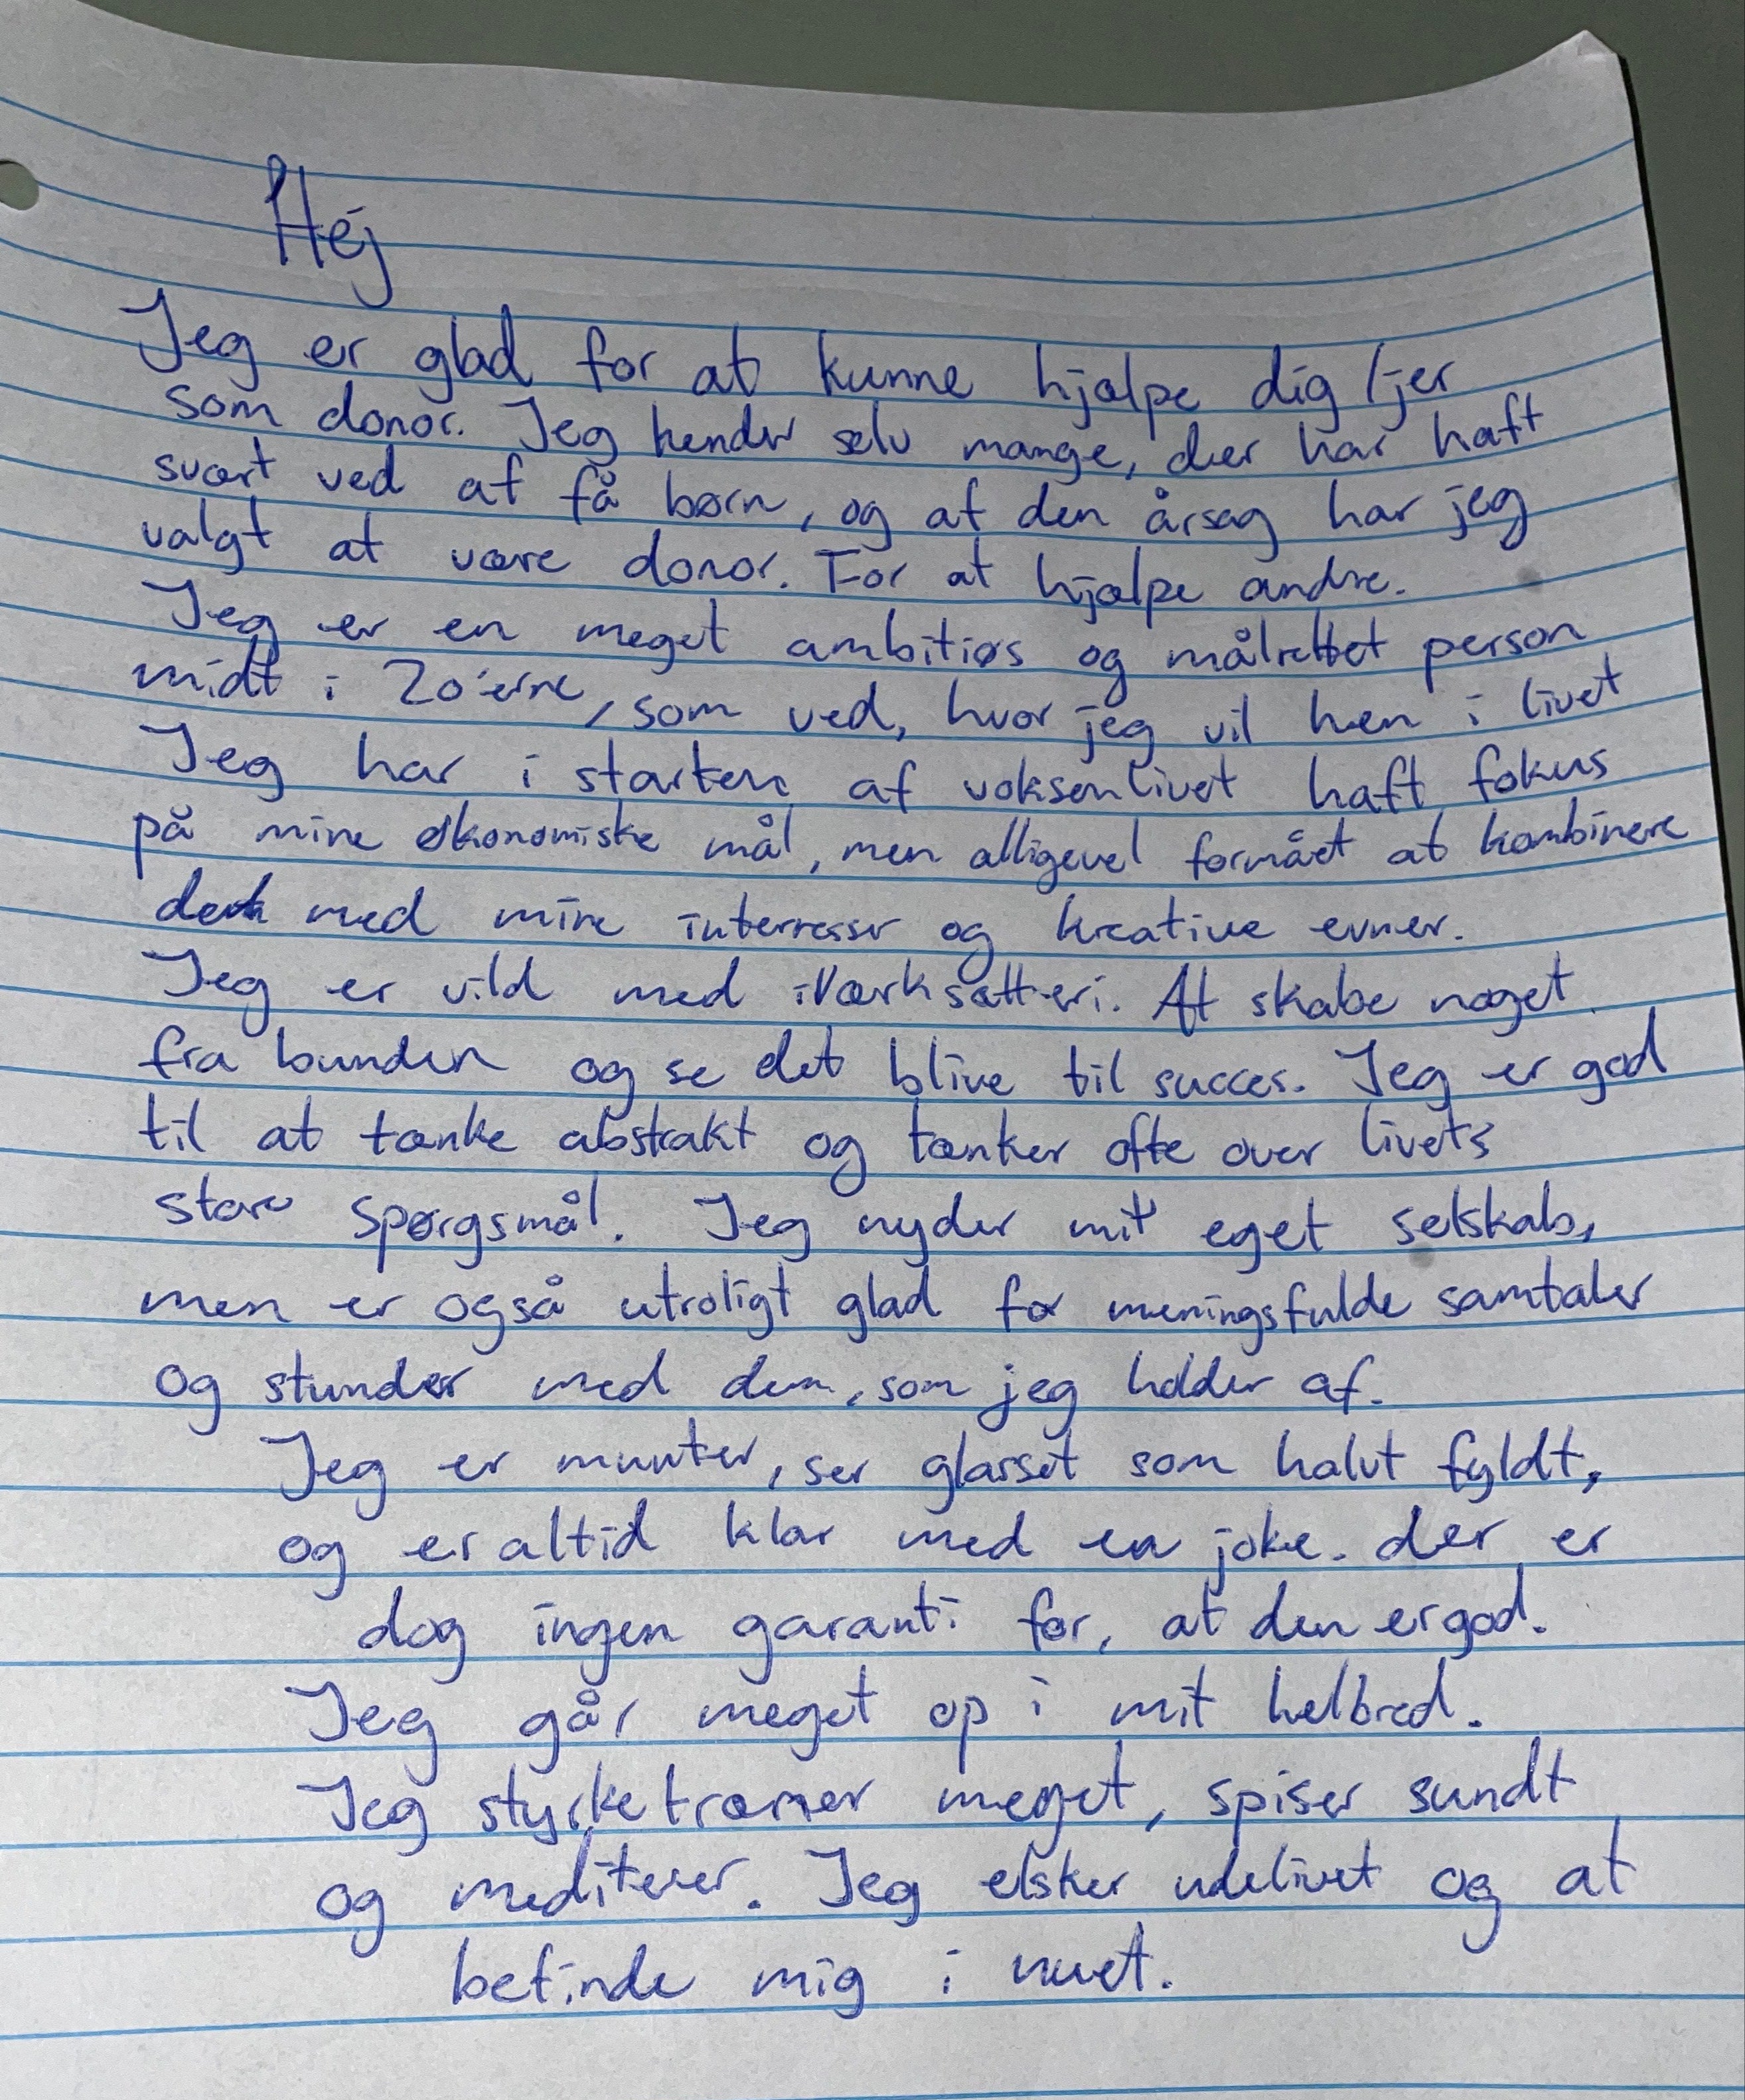 Hej
Jeg er glad for at kunne hjælpe dig/jer
som donor. Jeg kender selv mange, der har haft
svært ved at få børn, og af den årsag har jeg
valgt at være donor. For at hjælpe andre.
Jeg er en meget ambitiøs og målrettet person
midt i 20'erne, som ved, hvor jeg vil hen i livet
Jeg har i starten af voksenlivet haft fokus
på mine økonomiske mål, men alligevel formået at kombinere
med mine interresser og kreative evner.
Jeg er vild med iværksætteri. At skabe noget
fra bunden og se det blive til succes. Jeg er god
til at tænke abstrakt og tænker ofte over livets
store spørgsmål. Jeg nyder mit eget selskab,
men er også utroligt glad for meningsfulde samtaler
og stunder med dem, som jeg holder af.
Jeg er munter, ser glasset som halvt fyldt,
og er altid klar med en joke. der er
dog ingen garanti for, at den er god.
Jeg går meget op i mit helbred.
Jeg styrketræner meget, spiser sundt
og mediterer. Jeg elsker udelivet og at
befinde mig i nuet.